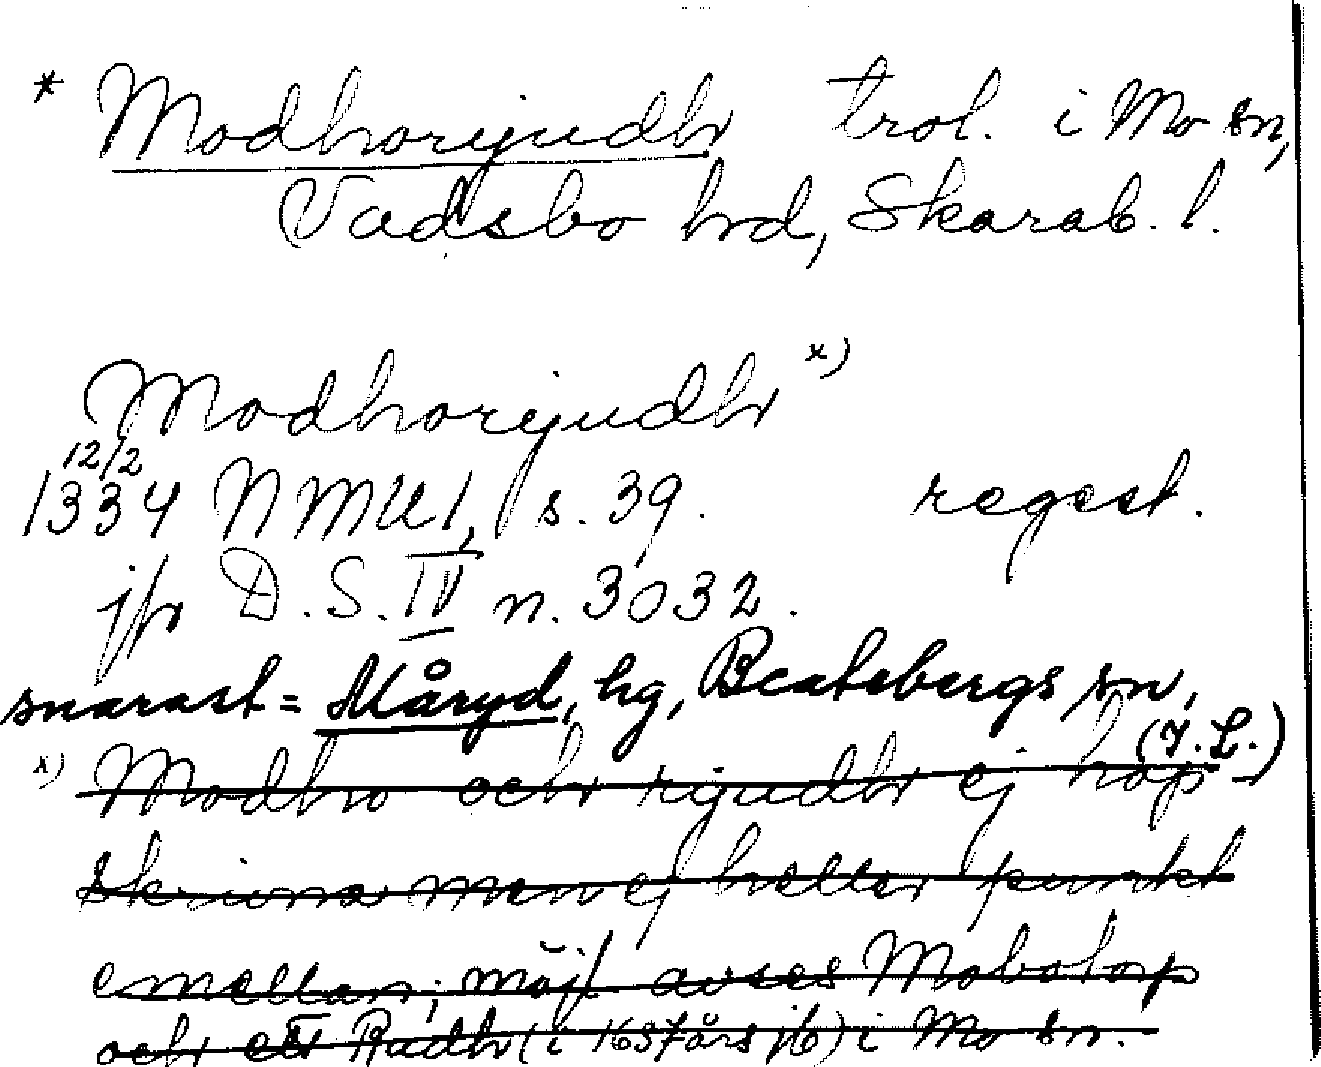 * Modhorijudh trol. i Mo sn,
Vadsbo hd, Skarab. l.
Modhorijudh x)
12/2
1334 NMU1, s. 39. regest.
jfr D.S. IV n. 3032.
snarast = Måryd, hg, Beatebergs sn,
(I.L.)
x) Modho och rijudh ej hop
skrivna men ej heller punkt
emellan; möjl avses Mobotorp
och ett Rudh (i 1637 års jb) i Mo sn.